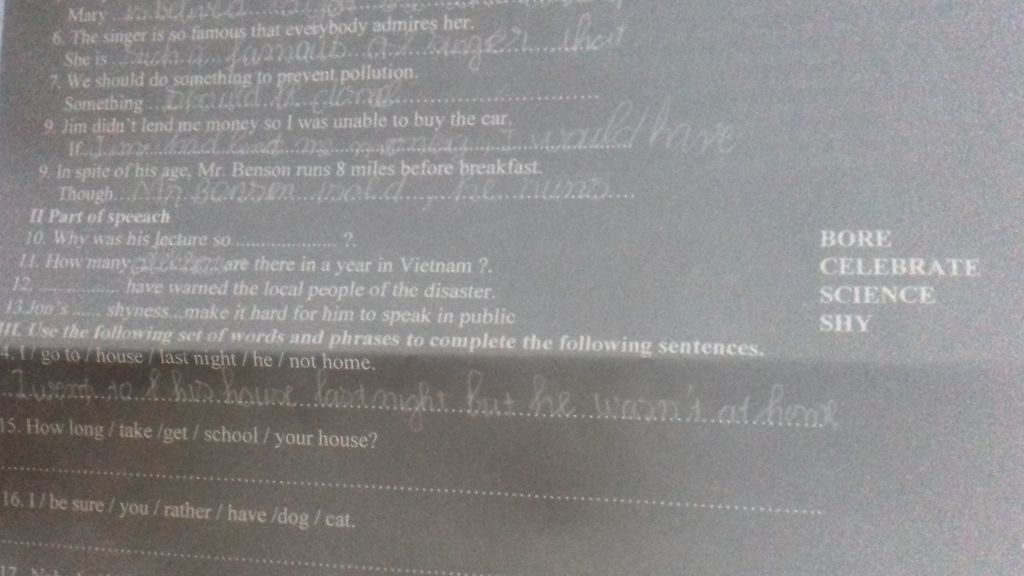 Mary
6. The singer is so famous that everybody admires her.
She is such a famous singer that
7. We should do something to prevent pollution.
Something should be done
9. Jim didn't lend me money so I was unable to buy the car.
If me money, I would have
9. In spite of his age, Mr. Benson runs 8 miles before breakfast.
Though Mr Benson is old, he runs
II Part of speeach
10. Why was his lecture so .................... ?. BORE
11. How many are there in a year in Vietnam ?. CELEBRATE
12. ................. have warned the local people of the disaster. SCIENCE
13.Jon's ...... shyness...make it hard for him to speak in public SHY
III. Use the following set of words and phrases to complete the following sentences.
4. I / go to / house / last night / he / not home.
I went to his house last night but he wasn't at home
15. How long / take /get / school / your house?
16. I / be sure / you / rather / have /dog / cat.
17.